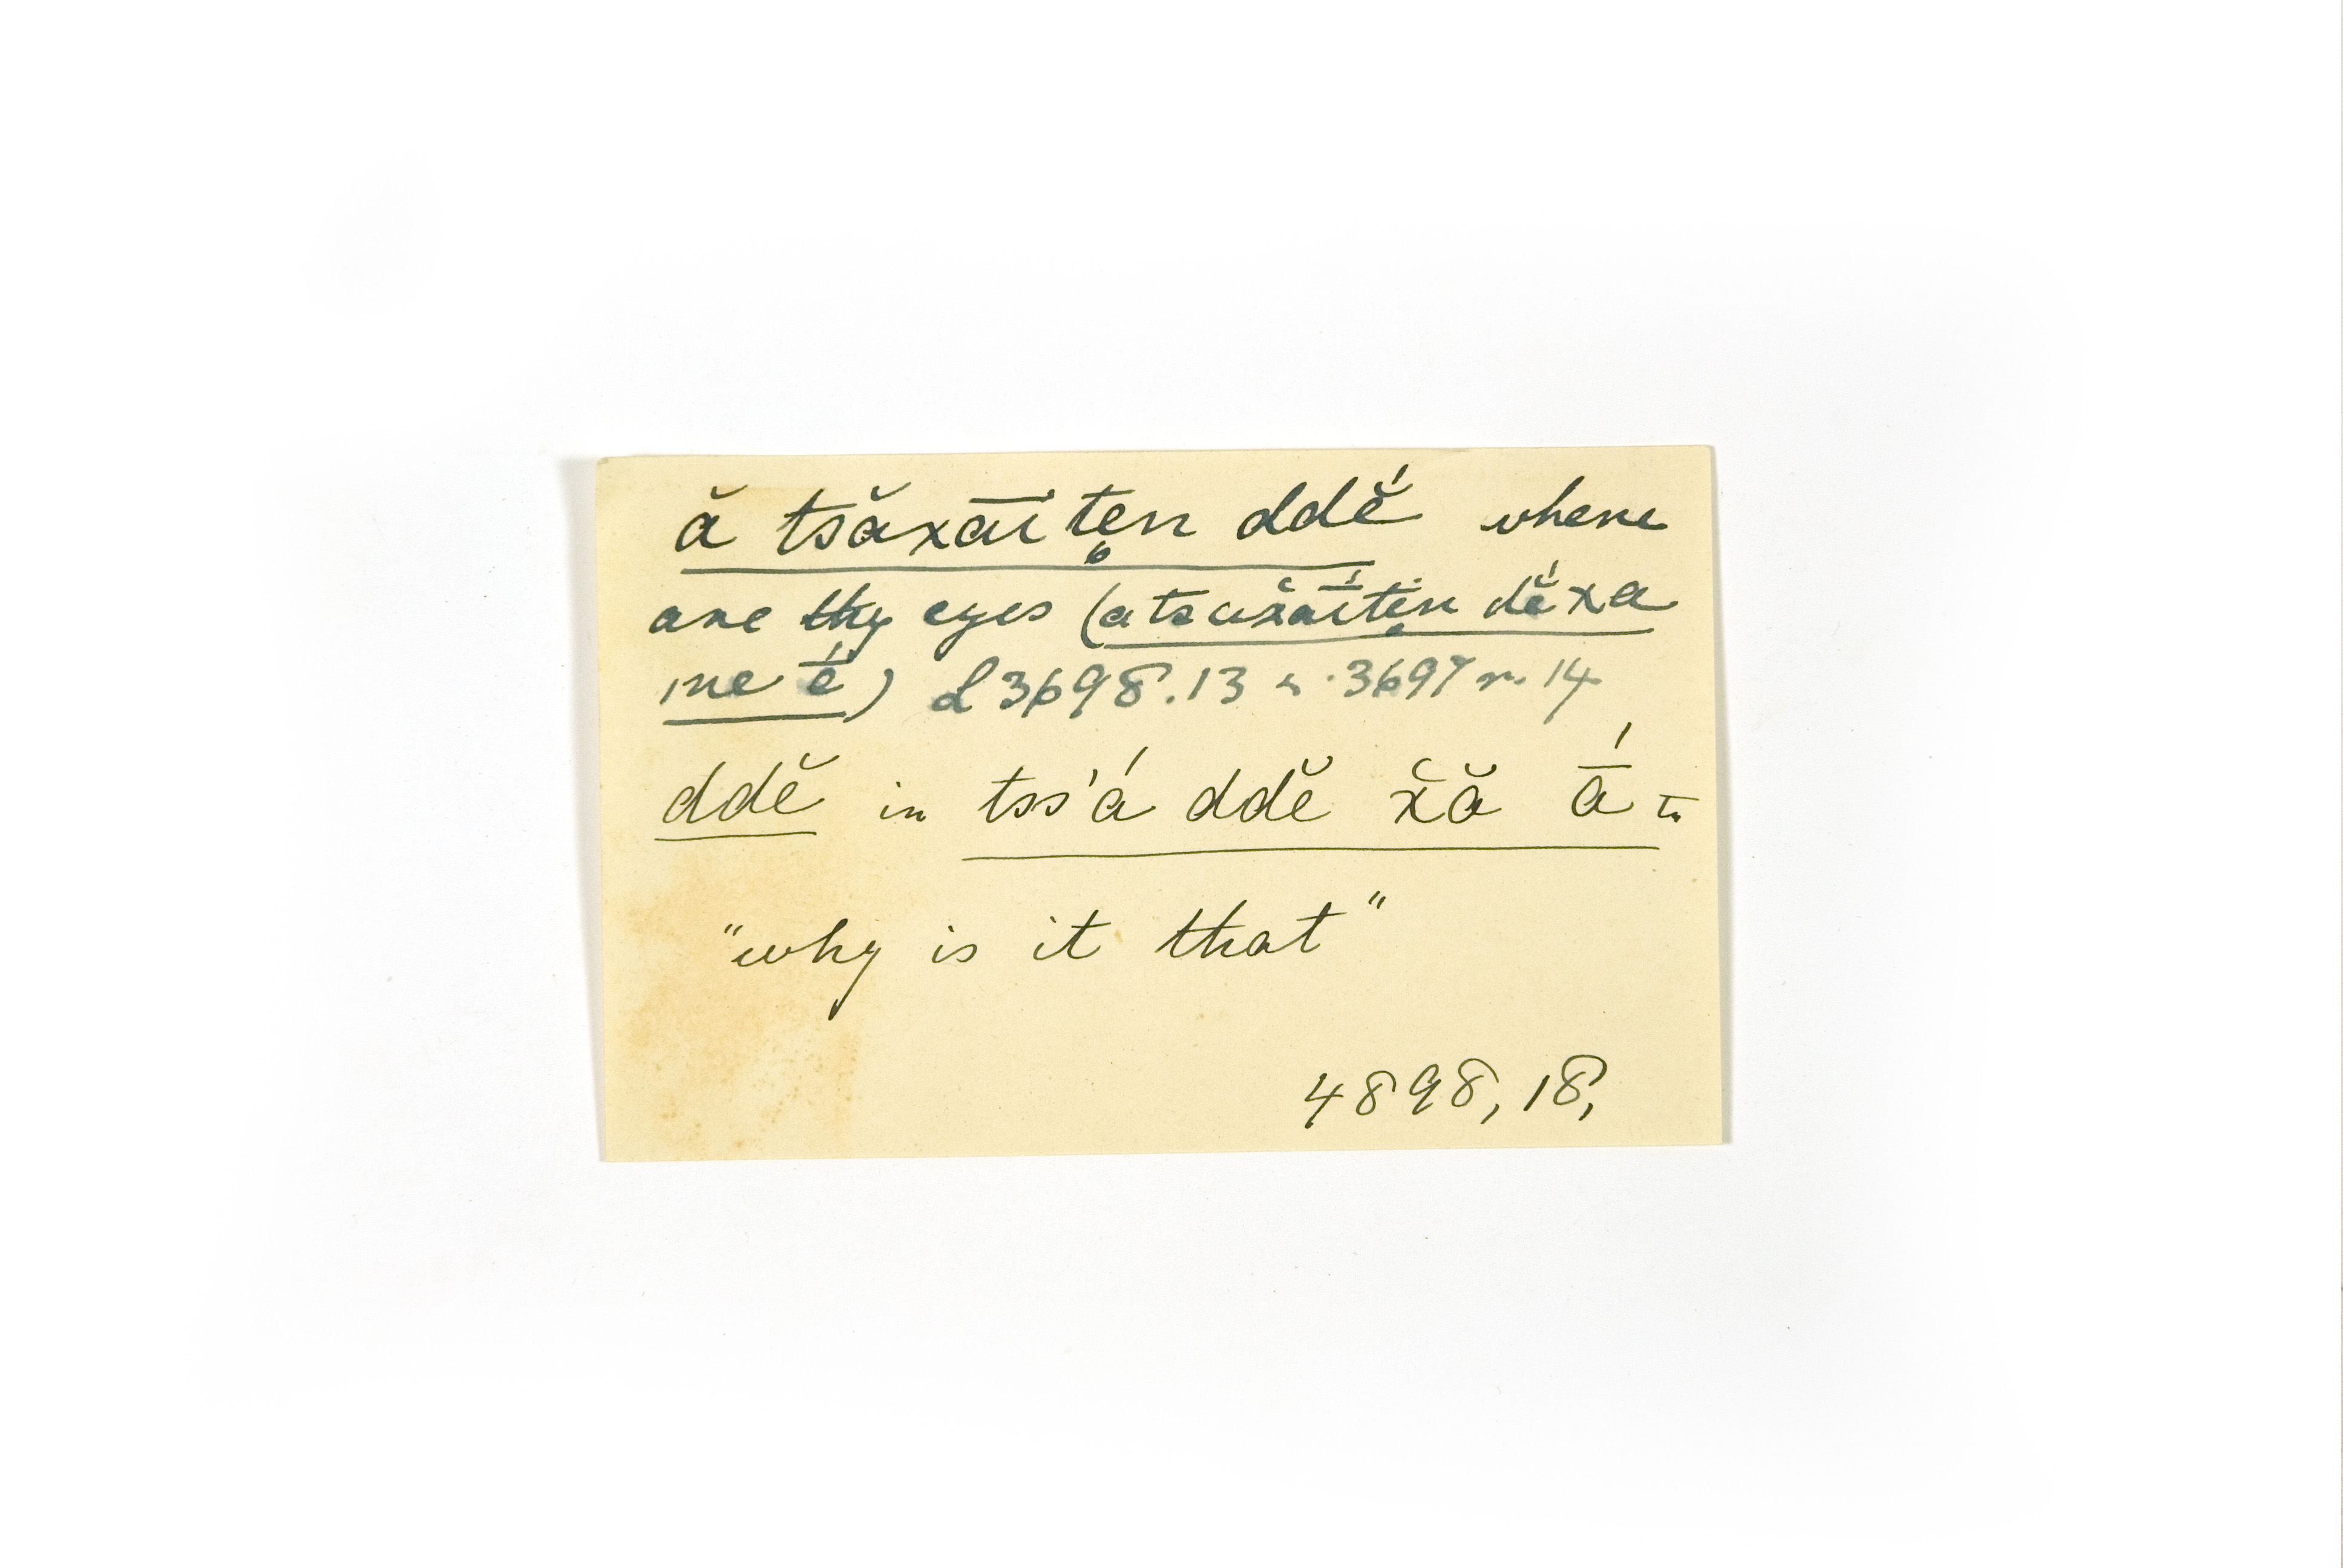 ă tsăxāītẹn ddĕ́ where
are thy eyes (atsax̌āī́tẹn dĕ́xa
me ḗ) d 3698.13 3697 n. 14
ddĕ in tss'á ddĕ x̌ă ā́
"why is it that"
4898, 18,